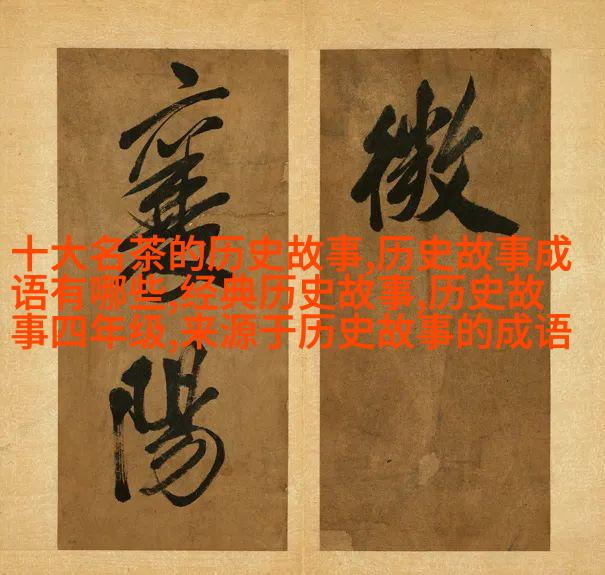 十大名茶的历史故事,历史故事成
语有哪些,经典历史故事,历史故
事四年级,来源于历史故事的成语
襄陽